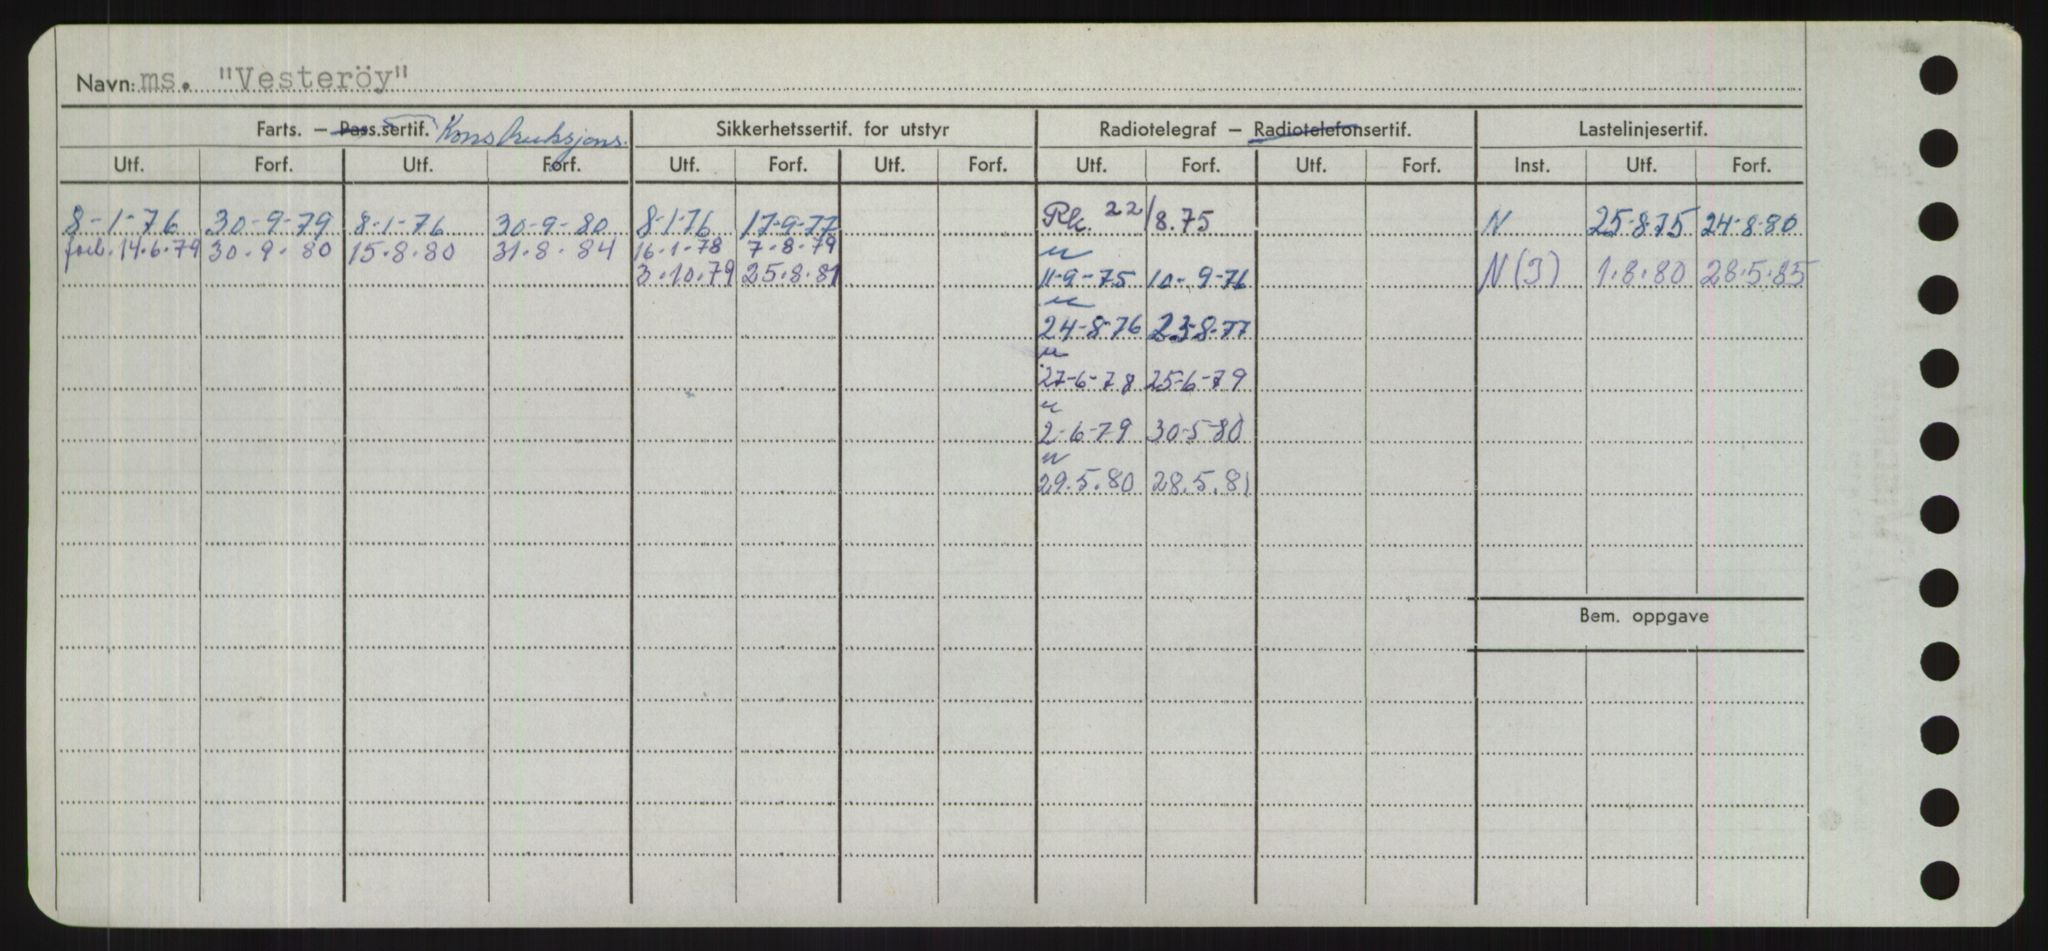 Navn: ms. "Vesteröy"
Farts. — Pass.sertif. Konstruksjons. Sikkerhetssertif. for utstyr Radiotelegraf — Radiotelefonsertif. Lastelinjesertif.
Utf. Forf. Utf. Forf. Utf. Forf. Utf. Forf. Utf. Forf. Utf. Forf. Inst. Utf. Forf.
8-1-76 30-9-79 8-1-76 30-9-80 8-1-76 17-9-77 Rk. 22/8.75 N 25-8-75 24-8-80
forl. 14.6.79 30.9.80 15.8.80 31.8.84 16.1.78 7.8.79 "
3.10.79 25.8.81 11-9-75 10-9-76 N(I) 1.8.80 28.5.85
"
24-8-76 23-8-77
"
27-6-78 25-6-79
"
2-6-79 30-5-80
"
29.5.80 28.5.81
Bem. oppgave